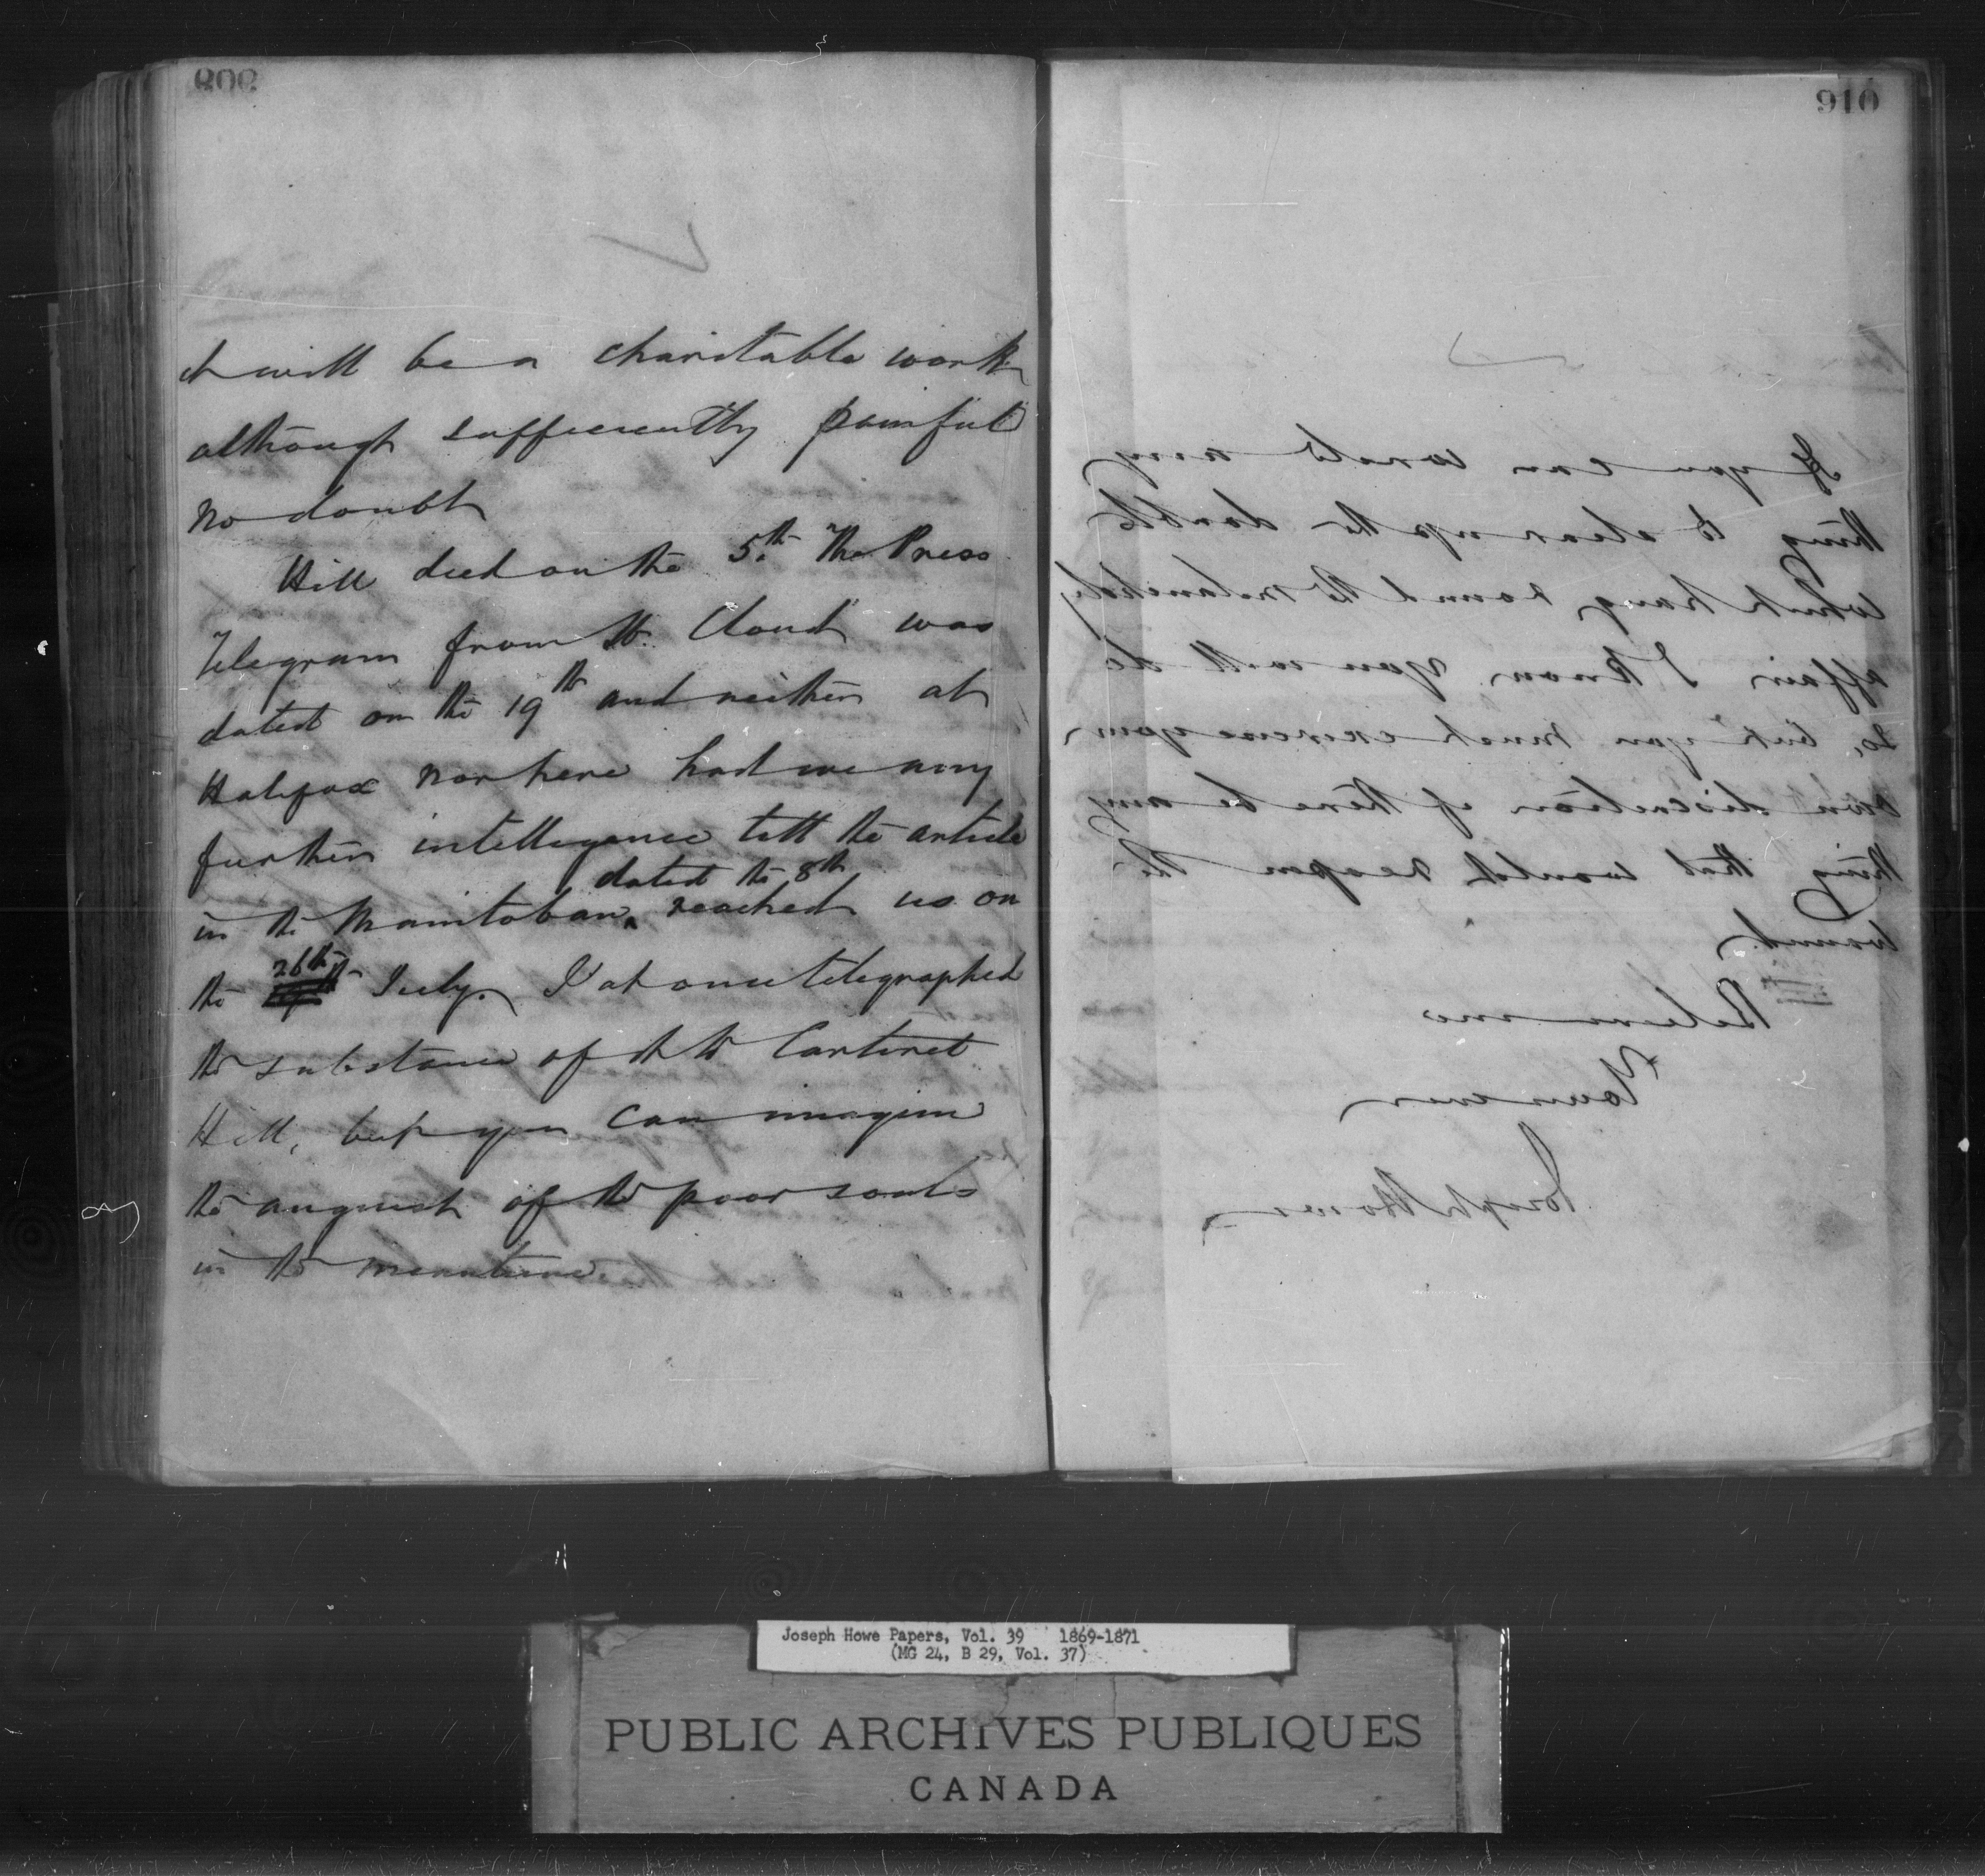 908
it will be a charitable work
although sufficiently painful
no doubt
Hill died on the 5th. The Press
Telegram from "St. Cloud" was
dated on the 19th and neither at
Halifax nor here had we any
further intelligence till the article
in the Manitoban, dated the 8th reached us on
the 26th July. I at once telegraphed
the substance of it to Carteret
Hill, but you can imagine
the anguish of the poor souls
in the meantime.
910
If you can send any
thing to clear up the doubts
which hang round the melancholy
affair I know you will do
so, but you must exercise your
own discretion if there be any
thing that would reopen the
wound
Believe me
Yours ever
Joseph Howe
Joseph Howe Papers, Vol. 39 1869-1871
(MG 24, B 29, Vol. 37)
PUBLIC ARCHIVES PUBLIQUES
CANADA